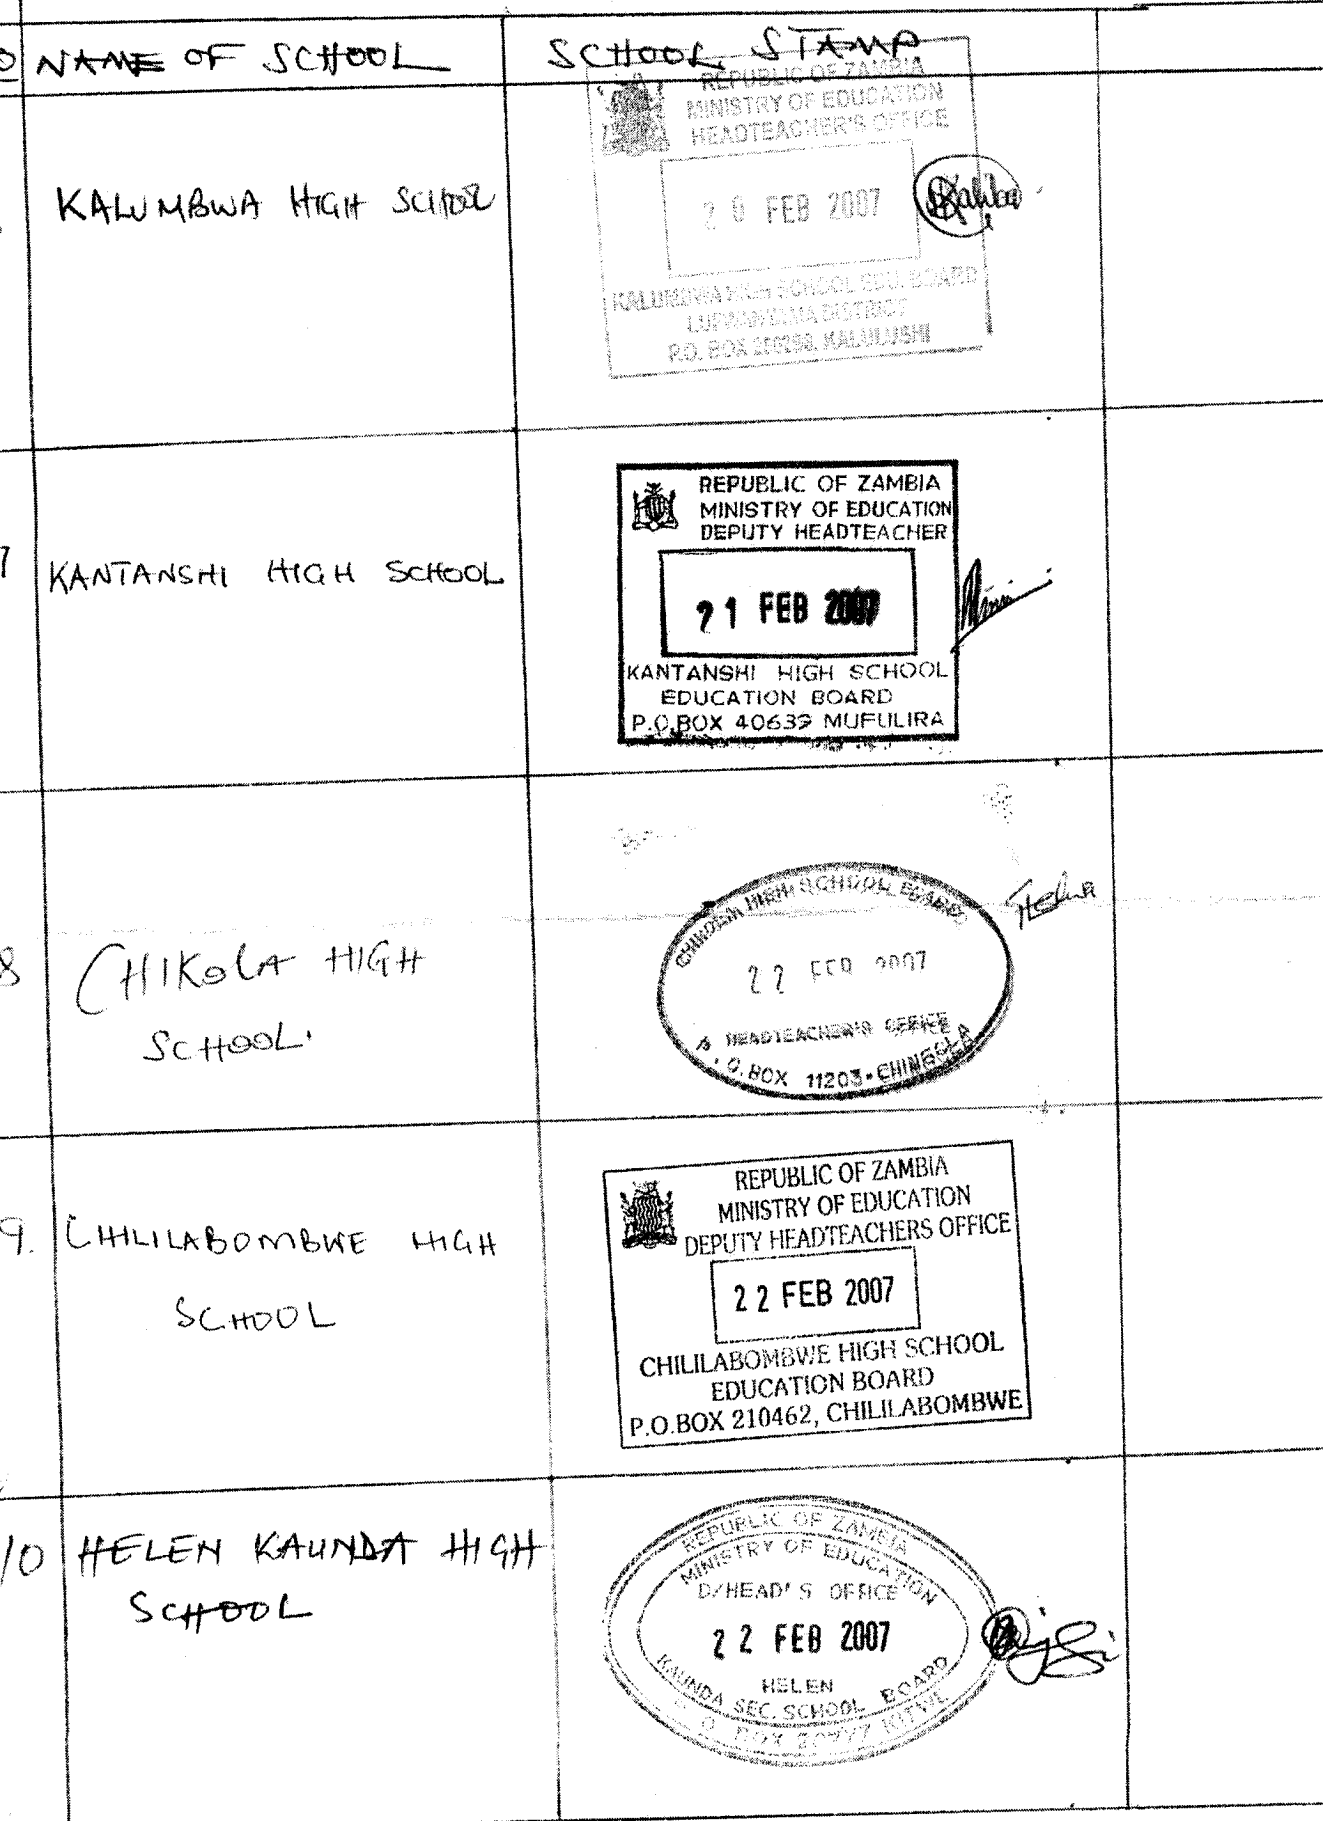 NAME OF SCHOOL
SCHOOL STAMP
KALUMBWA HIGH SCHOOL
REPUBLIC OF ZAMBIA
MINISTRY OF EDUCATION
HEADTEACHER'S OFFICE
20 FEB 2007
KALUMBWA HIGH SCHOOL EDU. BOARD
LUFWANYAMA DISTRICT
P.O. BOX KALULUSHI
7
KANTANSHI HIGH SCHOOL
REPUBLIC OF ZAMBIA
MINISTRY OF EDUCATION
DEPUTY HEADTEACHER
21 FEB 2007
KANTANSHI HIGH SCHOOL
EDUCATION BOARD
P.O.BOX 40639 MUFULIRA
8
CHIKOLA HIGH
SCHOOL.
HIGH SCHOOL BOARD
22 FEB 2007
HEADTEACHER'S OFFICE
P.O.BOX 11203-CHINGOLA
9.
CHILILABOMBWE HIGH
SCHOOL
REPUBLIC OF ZAMBIA
MINISTRY OF EDUCATION
DEPUTY HEADTEACHERS OFFICE
22 FEB 2007
CHILILABOMBWE HIGH SCHOOL
EDUCATION BOARD
P.O.BOX 210462, CHILILABOMBWE
10
HELEN KAUNDA HIGH
SCHOOL
REPUBLIC OF ZAMBIA
MINISTRY OF EDUCATION
D/HEAD'S OFFICE
22 FEB 2007
HELEN
KAUNDA SEC. SCHOOL BOARD
P.O. BOX 20777 KITWE